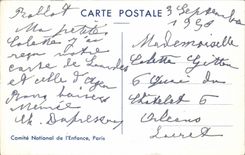 CARTE POSTALE
3 Septembre
Ma petite
Colette j'ai
reçu votre
carte de Lourdes
et celle d'Agen
Bons baisers
Mémée
Mademoiselle
Colette
6 Quai du
Châtelet 6
Orléans
Loiret
Comité National de l'Enfance, Paris